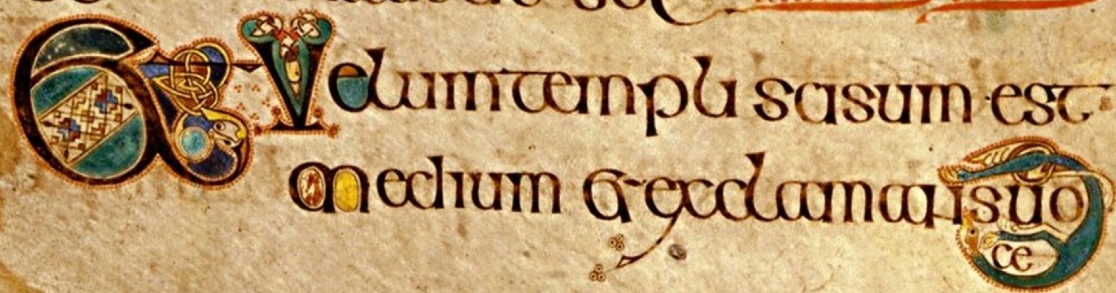 Et Velum templi scisum est
medium et exclamans uo
ce